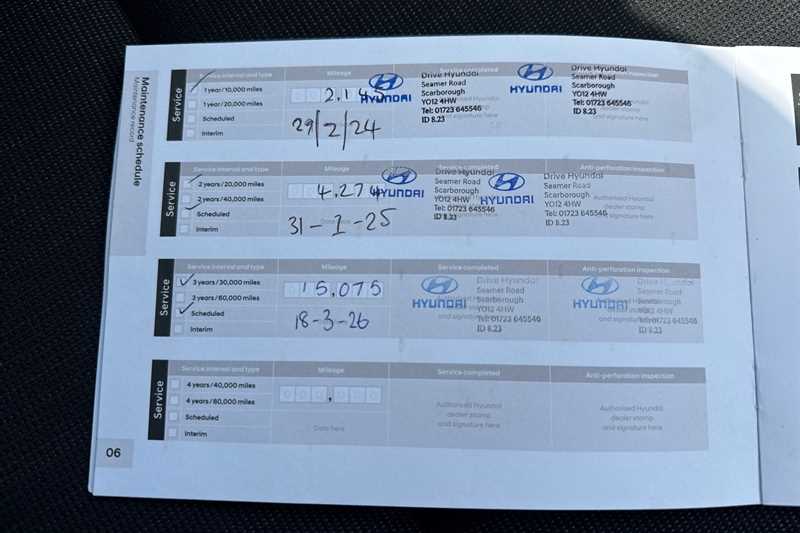 Maintenance schedule
Maintenance record
Service
Service interval and type
Mileage
Service completed
1 year/10,000 miles
1 year/20,000 miles
Scheduled
Interim
2,145
29/2/24
HYUNDAI
Drive Hyundai
Seamer Road
Scarborough
YO12 4HW
Tel: 01723 645546
ID 8.23
and signature here
HYUNDAI
Drive Hyundai
Seamer Road
Scarborough
YO12 4HW
Tel: 01723 645546
ID 8.23
Service
Service interval and type
Mileage
Service completed
Anti-perforation inspection
2 years/20,000 miles
2 years/40,000 miles
Scheduled
Interim
4,274
31-1-25
HYUNDAI
Drive Hyundai
Seamer Road
Scarborough
YO12 4HW
Tel: 01723 645546
ID 8.23
HYUNDAI
Drive Hyundai
Seamer Road
Scarborough
YO12 4HW
Tel: 01723 645546
ID 8.23
Authorised Hyundai
dealer stamp
and signature here
Service
Service interval and type
Mileage
Service completed
Anti-perforation inspection
3 years/30,000 miles
3 years/60,000 miles
Scheduled
Interim
15,075
18-3-26
HYUNDAI
Drive Hyundai
Seamer Road
Scarborough
YO12 4HW
Tel: 01723 645546
ID 8.23
HYUNDAI
Drive Hyundai
Seamer Road
Scarborough
YO12 4HW
Tel: 01723 645546
ID 8.23
Service
Service interval and type
Mileage
Service completed
Anti-perforation inspection
4 years/40,000 miles
4 years/80,000 miles
Scheduled
Interim
000,000
Date here
Authorised Hyundai
dealer stamp
and signature here
Authorised Hyundai
dealer stamp
and signature here
06